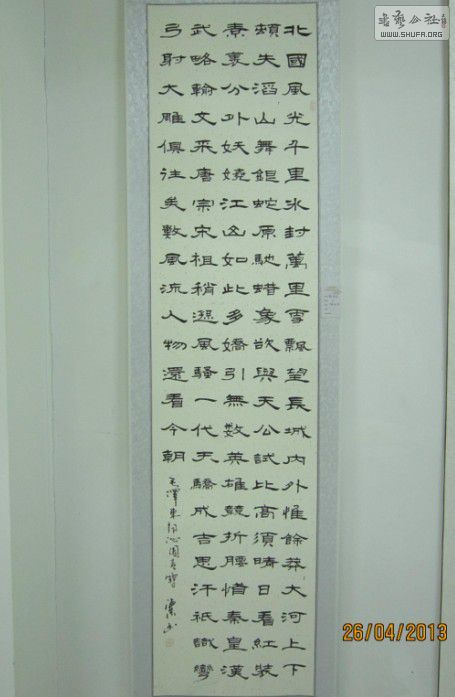 書藝公社
WWW.SHUFA.ORG
北國風光千里氷封萬里雪飄望長城内外惟餘莽大河上下
頓失滔山舞銀蛇原馳蜡象欲與天公試比高須晴日看紅裝
素裹分外妖嬈江山如此多嬌引無數英雄競折腰惜秦皇漢
武略輸文采唐宗宋祖稍遜風騷一代天驕成吉思汗祇識彎
弓射大雕俱往矣數風流人物還看今朝
毛澤東詞沁園春雪
26/04/2013